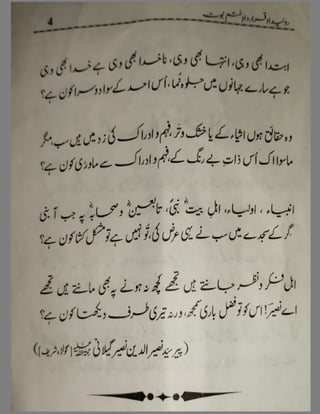 روئیداد قرارداد ختم نبوت
4
ابتدا بھی وہی، انتہا بھی وہی، ناخدا بھی وہی ہے خدا بھی وہی
جو ہے سارے جہانوں میں جلوہ نُما، اُس احد کے سوا دوسرا کون ہے؟
وہ حقائق ہوں اشیاء کے یا خشک و تر، فہم و ادراک کی زد میں ہیں سب، مگر
ماسوا اک اُس ذاتِ بے رنگ کے، فہم و ادراک سے ماورٰی کون ہے؟
انبیاء، اولیاء، اہلِ بیتِ نبیؐ، تابعینؒ و صحابہؓ پہ جب آ بنی
گِر کے سجدے میں سب نے یہی عرض کی، تُو نہیں ہے تو مشکل کشا کون ہے؟
اہلِ فکر و نظر جانتے ہیں تجھے کچھ نہ ہونے پہ بھی مانتے ہیں تجھے
اے نصیرؔ! اس کو تو فضلِ باری سمجھ، ورنہ تیری طرف دیکھتا کون ہے؟
(پیر سید نصیر الدین نصیرؔ گیلانی رحمۃ اللہ علیہ [گولڑہ شریف])